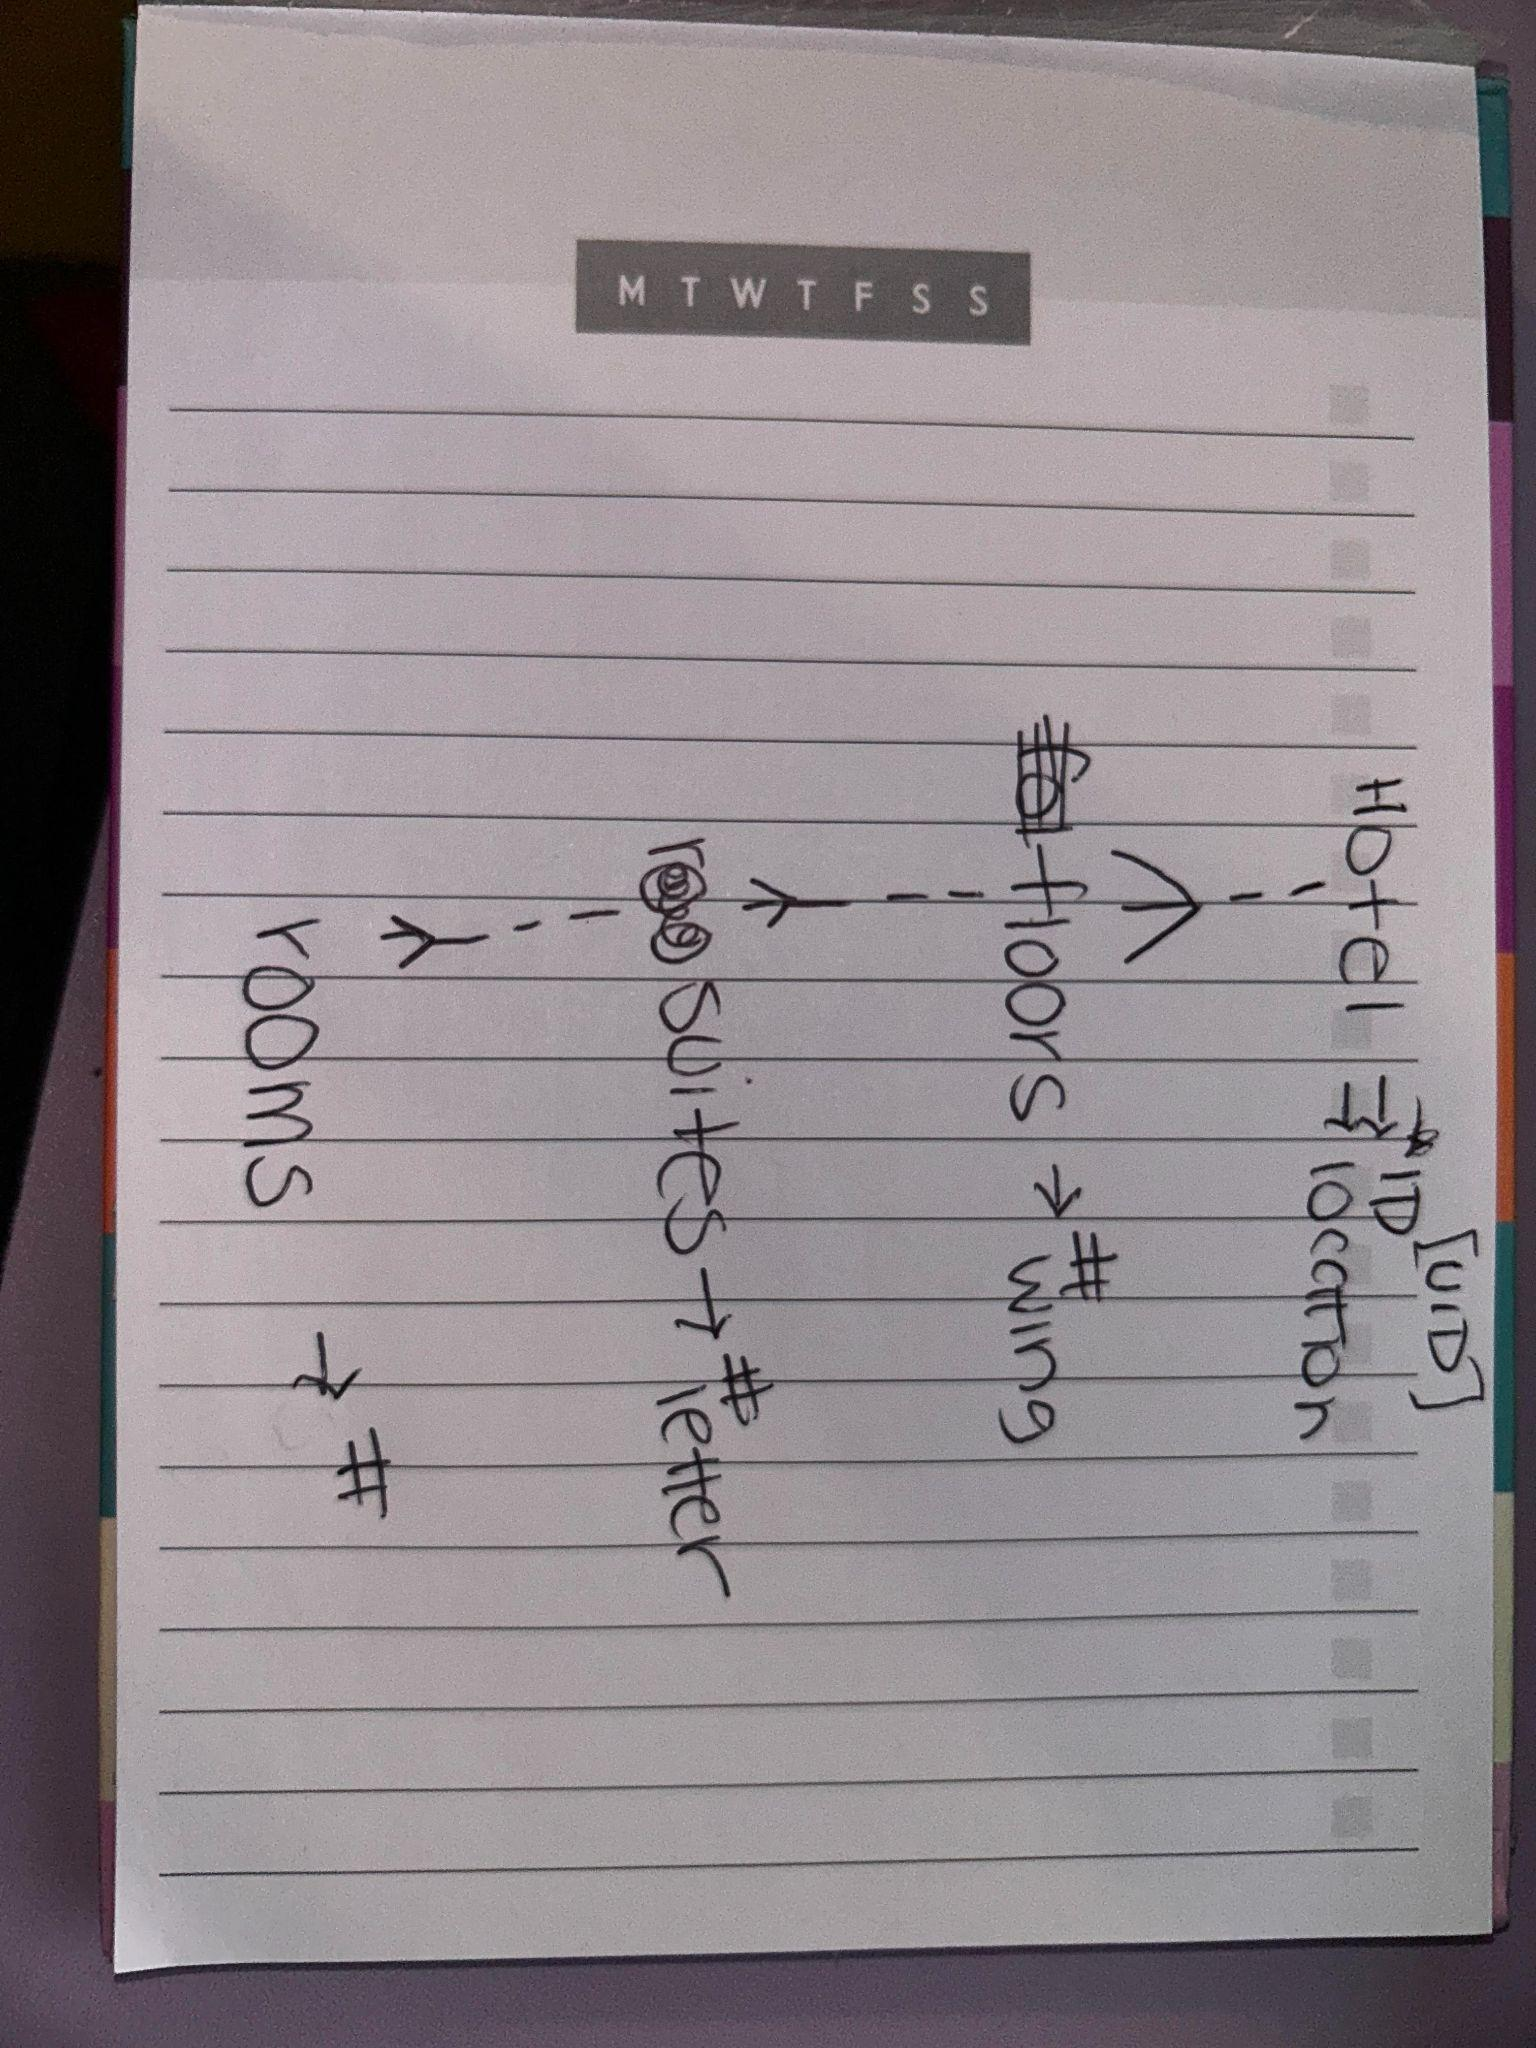 M T W T F S S
[UID]
Hotel → ID
→ location
floors → # wing
suites → # letter
rooms → #